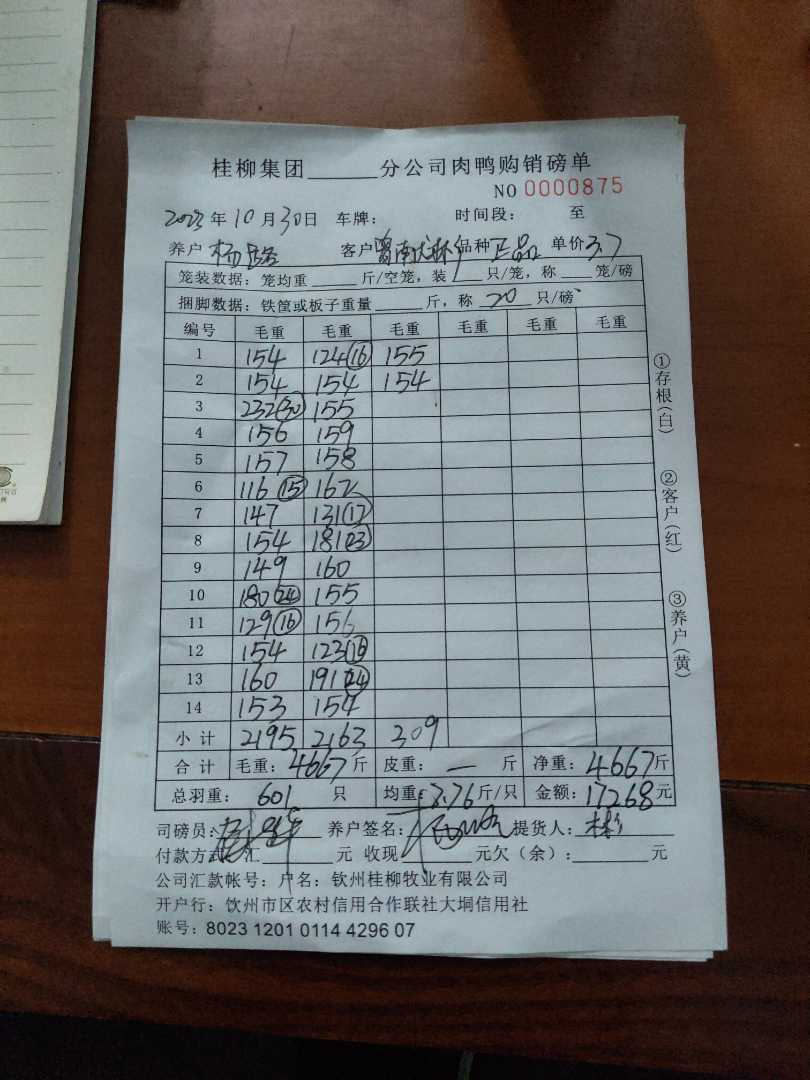 桂柳集团______分公司肉鸭购销磅单
NO 0000875
2023年10月30日 车牌： 时间段： 至
养户 杨 客户 品种 正品 单价 3.7
笼装数据：笼均重____斤/空笼，装___只/笼，称___笼/磅
捆脚数据：铁筐或板子重量____斤，称 20 只/磅
编号 毛重 毛重 毛重 毛重 毛重 毛重
1 154 124(16) 155
2 154 154 154
3 232(30) 155
4 156 159
5 157 158
6 116(15) 162
7 147 131(17)
8 154 181(23)
9 149 160
10 180(24) 155
11 129(16) 156
12 154 123(16)
13 160 191(24)
14 153 154
小计 2195 2163 309
合计 毛重：4667斤 皮重：— 斤 净重：4667斤
总羽重：601 只 均重：7.76斤/只 金额：17268元
司磅员： 养户签名： 提货人：
付款方式：汇____元 收现____元欠（余）：____元
公司汇款帐号：户名：钦州桂柳牧业有限公司
开户行：饮州市区农村信用合作联社大垌信用社
账号：8023 1201 0114 4296 07
①存根(白)
②客户(红)
③养户(黄)